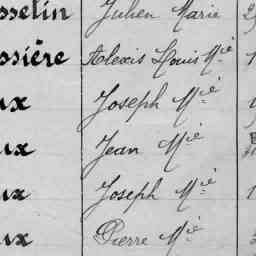 sselin Julien Marie
ssière Alexis Louis Mie
ux Joseph Mie
ux Jean Mie
ux Joseph Mie
ux Pierre Mie